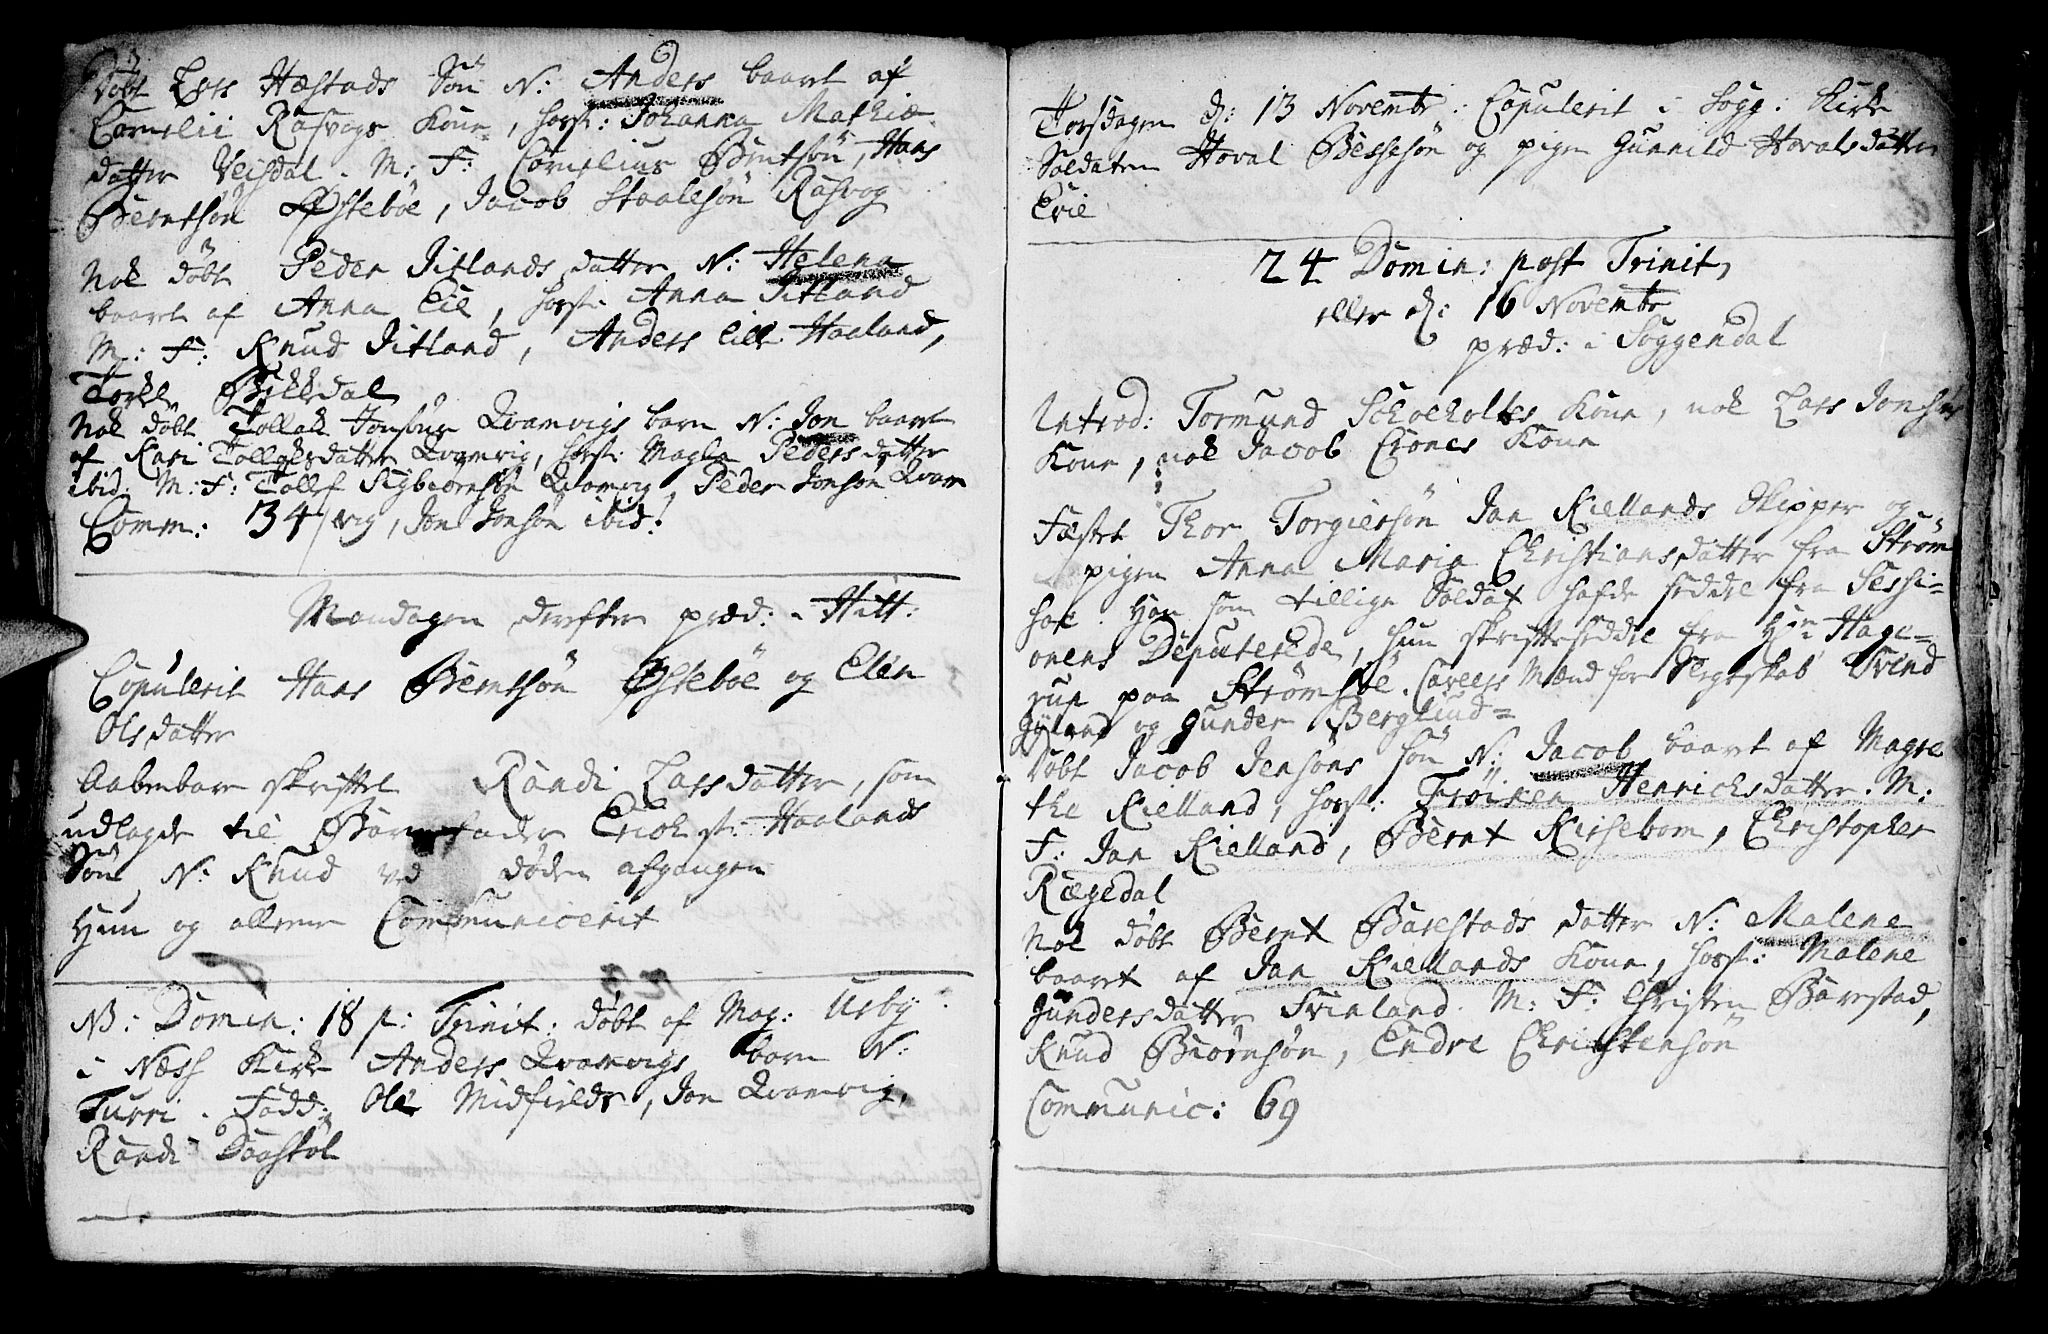 Døbt Lars Hæstads Søn N: Anders baaret af
Cornelii Rasvogs Kone, horst: Johanna Mathiæ
datter Veisdal. M: F: Cornelius Berntsøn, Hans
Berntsøn Østebøe, Jacob Staalesøn Rasvog
Nok døbt Peder Jitlands datter N: Helena
baaret af Anna Eie, horst: Anna Jitland
M: F: Knud Jitland, Anders lille Haaland,
Torkel Birkedal
Nok døbt Tollak Jonsøns Qvamvigs barn N: Jon baaret
af Kari Tollaksdatter Qvamvig, horst: Magla Pedersdatter
ibid. M: F: Tollef Sigbiørnsøn Qvamvig, Peder Jonsøn Qvam
Comm: 34 / vig, Jon Jonsøn ibid:
Mandagen derefter præd: i Hitt:
Copulerit Hans Berntsøn Østebøe og Elen
Olsdatter
Aabenbare skriftet Randi Larsdatter, som
udlagde til Barnefader Erich st: Haalands
Søn N: Knud ved døden afgangen
Hun og allene Communicerit
NB: Domin: 18 p: Trinit: døbt af Mag: Usby
i Næss Kirke Anders Qvamvigs barn N:
Turri. Fadd: Ole Midfields, Jon Qvamvig,
Randi Daaskol
Torsdagen d: 13 Novembr: Copulerit i Sogg: Kirke
Soldaten Hoval Bessesøn og pigen Gunnild Hovalsdatter
Evie
24 Domin: post Trinit,
eller d: 16 Novembr
præd: i Soggendal
Introd: Tormund Skoeholtes Kone, nok Lars Jonsøns
Kone, nok Jacob Erones Kone
Fæstet Thor Torgiersøn Jan Kiellands Skipper og
pigen Anna Maria Christiansdatter fra Strøm
soe. Han som tillige Soldat hafde seddel fra Sessi-
onens Deputerede, hun skriftesedel fra Hrn Hage=
rup paa Strømsøe. Caveers Mænd for Svogerskab Svend
Gyland og Gunder Berglund=
Døbt Jacob Jensøns søn N: Jacob baaret af Magre
the Kielland, horst: Frøiken Henrichsdatter. M:
F: Jan Kielland, Bernt Kirsebom, Christopher
Rægedal
Nok døbt Bernt Barestads datter N: Malene
baaret af Jan Kiellands Kone, horst: Malene
Gundersdatter Svinland. M: F: Christen Barestad,
Knud Biørnsøn, Endre Christensøn
Communic: 69